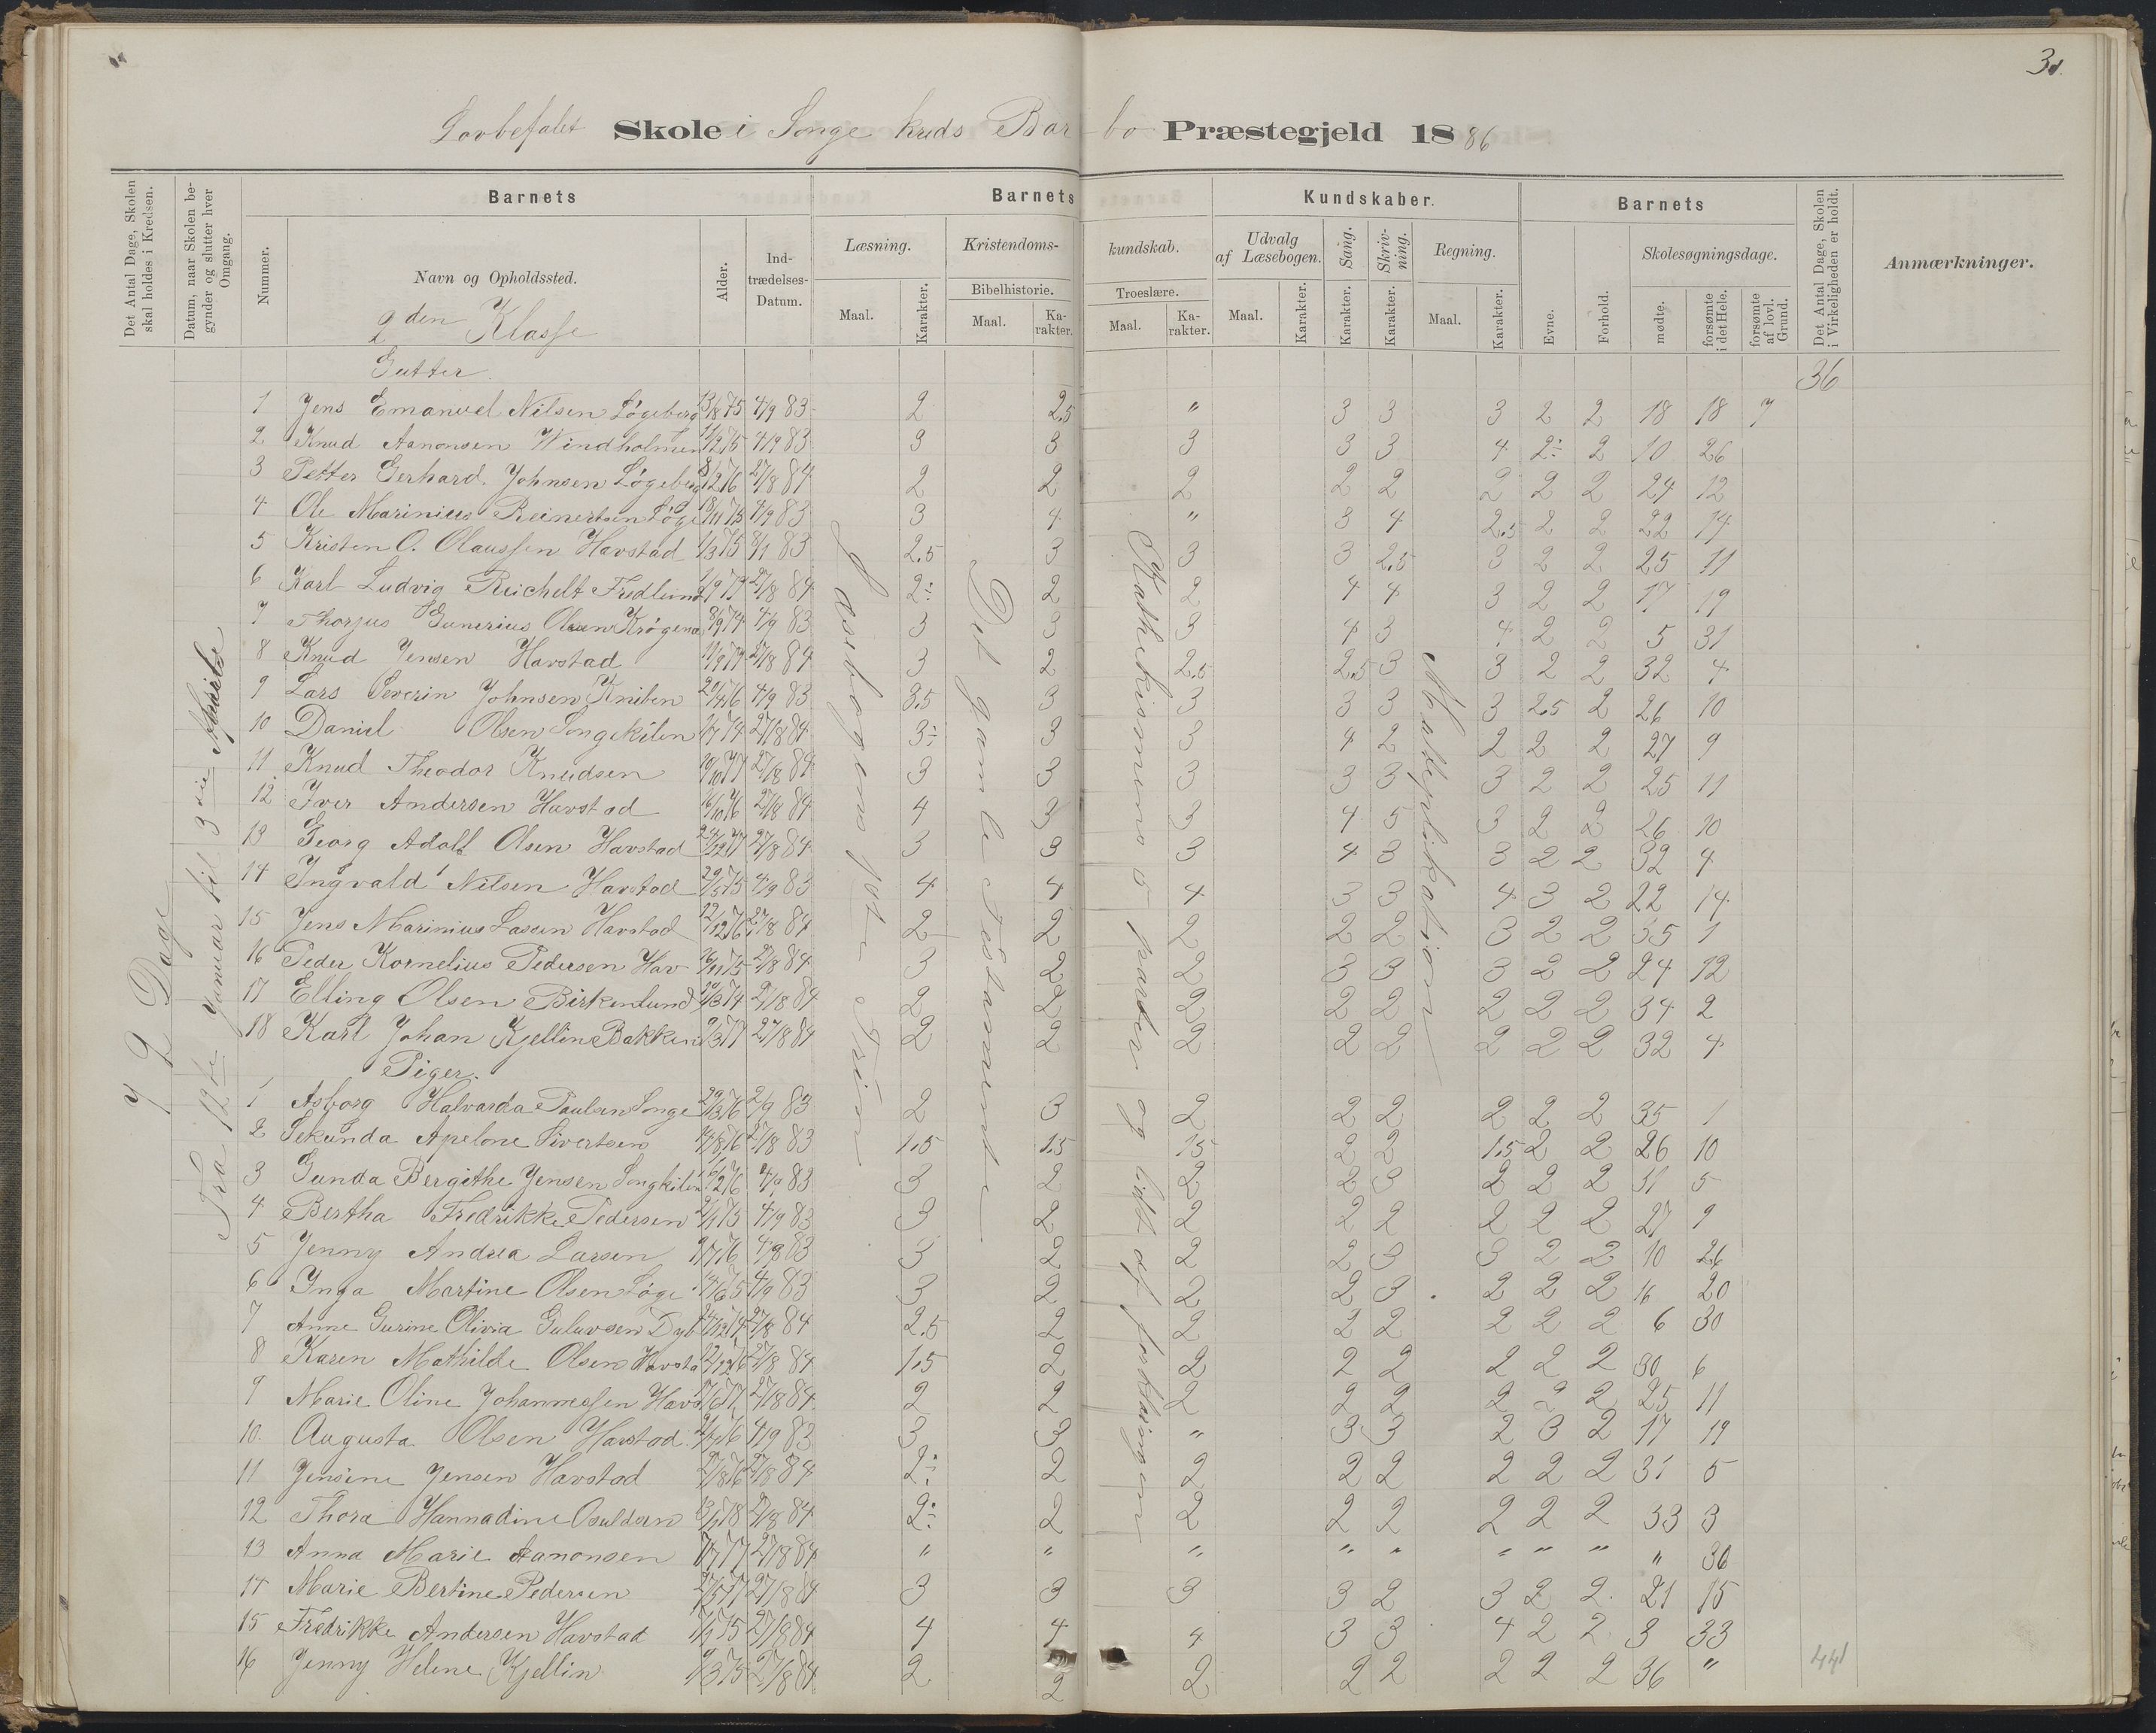 3
Lovbefalet Skole i Songe kreds Barbo Præstegjeld 1886
Det Antal Dage, Skolen skal holdes i Kredsen.
Datum, naar Skolen begynder og slutter hver Omgang.
Barnets
Nummer.
Navn og Opholdssted.
Alder.
Indtrædelses-Datum.
Barnets Kundskaber.
Læsning.
Maal.
Karakter.
Kristendomskundskab.
Bibelhistorie.
Maal.
Karakter.
Troeslære.
Maal.
Karakter.
Udvalg af Læsebogen.
Maal.
Karakter.
Sang.
Karakter.
Skrivning.
Karakter.
Regning.
Maal.
Karakter.
Barnets
Evne.
Forhold.
Skolesøgningsdage.
mødte.
forsømte i det Hele.
forsømte af lovl. Grund.
Det Antal Dage, Skolen i Virkeligheden er holdt.
Anmærkninger.
2den Klasse
Gutter.
36
72 Dage
Fra 12te Januar til 3die
Læsebogens 1ste Trin
Det gamle Testamente
Katekismens 5 parter og lidt af forklaringen
Multiplikation
1 Jens Emanuel Nilsen Løgeberg 13/8 75 4/9 83 2 2.5 " 3 3 3 2 2 18 18 7
2 Knud Aanonsen Windholmen 4/9 83 3 3 3 3 3 4 2÷ 2 10 26
3 Petter Gerhard Johnsen Løgeberg 27/8 84 2 2 2 2 2 2 2 2 24 12
4 Ole Marinius Reinertsen Løge 18/11 75 4/9 83 3 4 " 3 4 2.5 2 2 22 14
5 Kristen O. Olaussen Havstad 8/1 83 2.5 3 3 3 2.5 3 2 2 25 11
6 Karl Ludvig Reichelt Fredlund 27/8 84 2÷ 2 2 4 4 3 2 2 17 19
7 Thorjus Gunerius Olsen 4/9 83 3 3 3 4 3 4 2 2 5 31
8 Knud Jensen Havstad 27/8 84 3 2 2.5 2.5 3 3 2 2 32 4
9 Lars Severin Johnsen Kniben 4/9 83 3.5 3 3 3 3 3 2.5 2 26 10
10 Daniel Olsen Songekilen 27/8 84 3÷ 3 3 4 2 2 2 2 27 9
11 Knud Theodor Knudsen 10/10 77 27/8 84 3 3 3 3 3 3 2 2 25 11
12 Iver Andersen Havstad 16/10 76 27/8 84 4 3 3 4 5 3 2 2 26 10
13 Georg Adolf Olsen Havstad 24/12 77 27/8 84 3 3 3 4 3 3 2 2 32 4
14 Ingvald Nilsen Havstad 4/9 83 4 4 4 3 3 4 3 2 22 14
15 Jens Marinius Lassen Havstad 12/12 76 27/8 84 2 2 2 2 2 3 2 2 35 1
16 Peder Kornelius Pedersen Hav 16/11 75 27/8 84 3 2 2 3 3 3 2 2 24 12
17 Elling Olsen Birkenlund 27/8 84 2 2 2 2 2 2 2 2 34 2
18 Karl Johan Kjellin Bakken 9/3 77 27/8 84 2 2 2 2 2 2 2 2 32 4
Piger.
1 Asborg Halvarda Paulsen Songe 29/3 76 2/9 83 2 3 2 2 2 2 2 2 35 1
2 Sekunda Apelone Sivertsen 27/8 83 1.5 1.5 1.5 2 2 1.5 2 2 26 10
3 Gunda Bergithe Jensen Songkilen 4/9 83 3 2 2 2 3 2 2 2 31 5
4 Bertha Fredrikke Pedersen 4/9 83 3 2 2 2 2 2 2 2 27 9
5 Jenny Andrea Larsen 4/9 83 3 2 2 2 3 3 2 2 10 26
6 Inga Martine Olsen Løge 4/9 83 3 2 2 2 3 2 2 2 16 20
7 Anne Gurine Olivia Guluvsen Dyb 27/8 84 2.5 2 2 2 2 2 2 2 6 30
8 Karen Mathilde Olsen Havsta 27/8 84 1.5 2 2 2 2 2 2 2 30 6
9 Marie Oline Johannessen Havs 27/8 84 2 2 2 2 2 2 2 2 25 11
10. Augusta Olsen Havstad 4/9 83 3 3 " 3 3 2 3 2 17 19
11 Jensine Jensen Havstad 27/8 84 2÷ 2 2 2 2 2 2 2 31 5
12 Thora Hannadine Osuldsen 27/8 84 2÷ 2 2 2 2 2 2 2 33 3
13 Anna Marie Aanonsen 27/8 84 " " " " " " " " " 36
14 Marie Bertine Pedersen 27/8 84 3 3 3 3 2 3 2 2 21 15
15 Fredrikke Andersen Havstad 27/8 84 4 4 4 3 3 4 2 2 3 33
16 Jenny Helene Kjellin 9/3 75 27/8 84 2 2 2 2 2 2 2 2 36 "
441